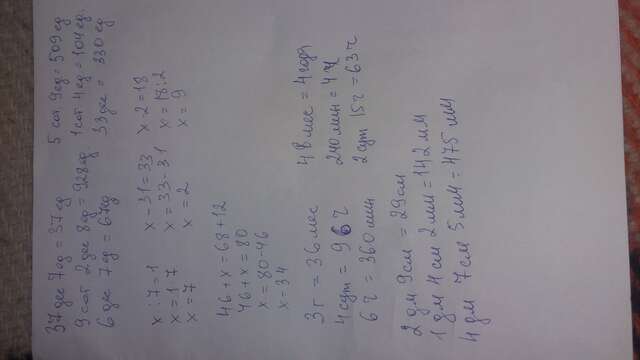 37 дес 7 ед = 37 ед
5 сот 9 ед = 509 ед
9 сот 2 дес 8 ед = 928 ед
1 сот 4 ед = 104 ед
6 дес 7 ед = 67 ед
33 дес = 330 ед
x : 7 = 1
x - 31 = 33
x · 2 = 18
x = 1 · 7
x = 33 - 31
x = 18 : 2
x = 7
x = 2
x = 9
46 + x = 68 + 12
46 + x = 80
x = 80 - 46
x = 34
3 г = 36 мес
48 мес = 4 года
4 сут = 96 ч
240 мин = 4 ч
6 ч = 360 мин
2 сут 15 ч = 63 ч
2 дм 9 см = 29 см
1 дм 4 см 2 мм = 142 мм
4 дм 7 см 5 мм = 475 мм